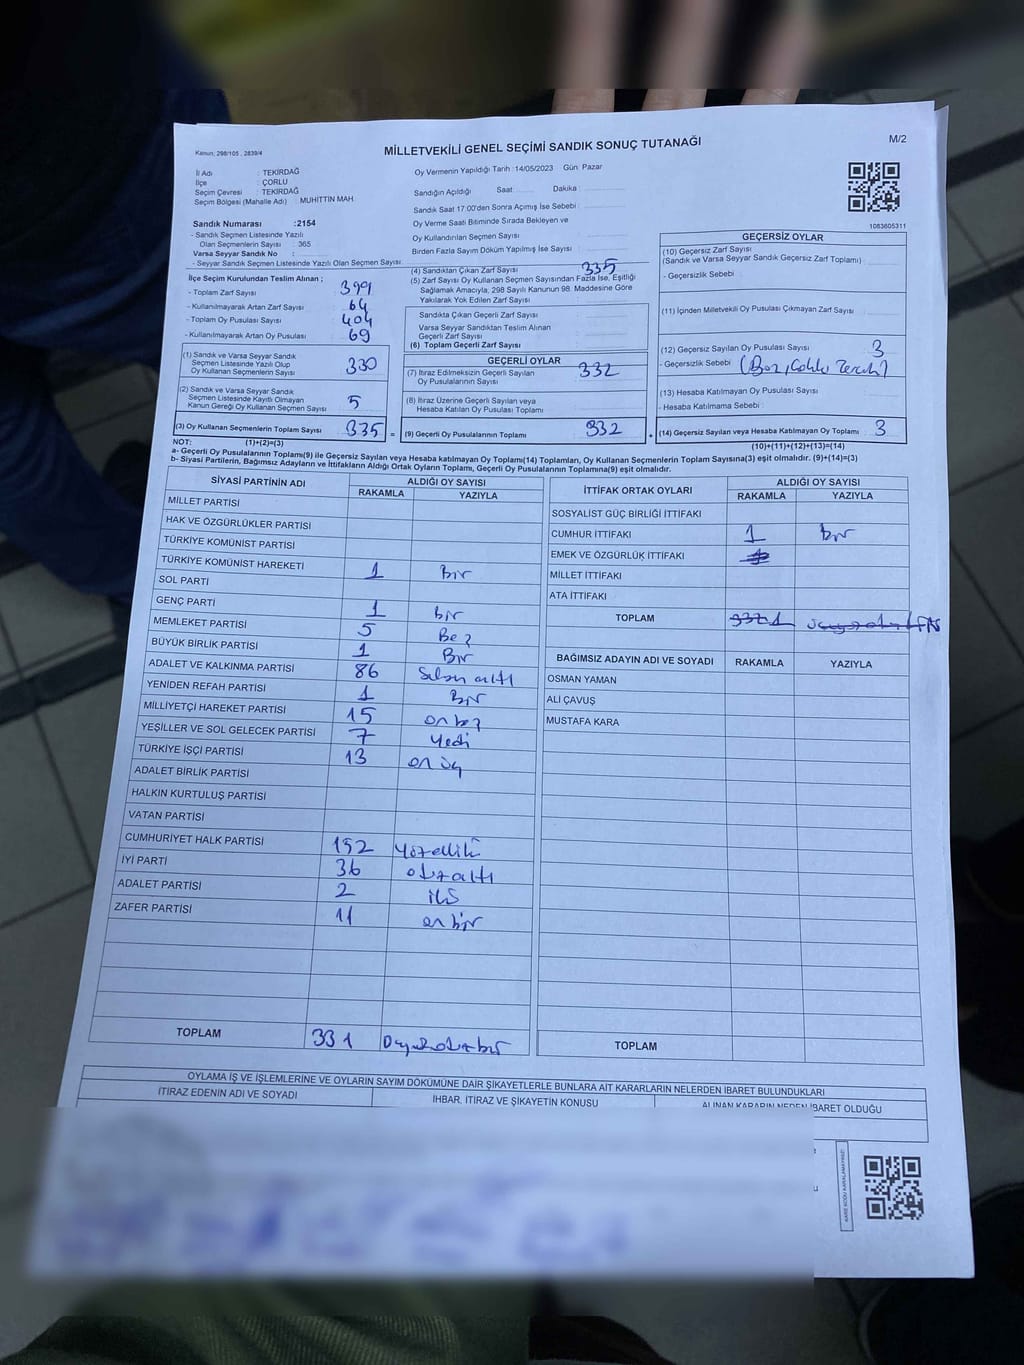 Kanun: 298/105 , 2839/4
MİLLETVEKİLİ GENEL SEÇİMİ SANDIK SONUÇ TUTANAĞI
M/2
İl Adı : TEKİRDAĞ
İlçe : ÇORLU
Seçim Çevresi : TEKİRDAĞ
Seçim Bölgesi (Mahalle Adı) : MUHİTTİN MAH
Sandık Numarası :2154
- Sandık Seçmen Listesinde Yazılı
Olan Seçmenlerin Sayısı : 365
Varsa Seyyar Sandık No :
- Seyyar Sandık Seçmen Listesinde Yazılı Olan Seçmen Sayısı
Oy Vermenin Yapıldığı Tarih :14/05/2023 Gün: Pazar
Sandığın Açıldığı Saat: Dakika :
Sandık Saat 17:00'den Sonra Açılmış İse Sebebi :
Oy Verme Saati Bitiminde Sırada Bekleyen ve
Oy Kullandırılan Seçmen Sayısı :
Birden Fazla Sayım Döküm Yapılmış İse Sayısı :
1083605311
İlçe Seçim Kurulundan Teslim Alınan ;
- Toplam Zarf Sayısı : 399
- Kullanılmayarak Artan Zarf Sayısı : 64
- Toplam Oy Pusulası Sayısı : 404
- Kullanılmayarak Artan Oy Pusulası : 69
(1) Sandık ve Varsa Seyyar Sandık
Seçmen Listesinde Yazılı Olup
Oy Kullanan Seçmenlerin Sayısı : 330
(2) Sandık ve Varsa Seyyar Sandık
Seçmen Listesinde Kayıtlı Olmayan
Kanun Gereği Oy Kullanan Seçmen Sayısı : 5
(3) Oy Kullanan Seçmenlerin Toplam Sayısı : 335 =
(4) Sandıktan Çıkan Zarf Sayısı : 335
(5) Zarf Sayısı Oy Kullanan Seçmen Sayısından Fazla İse, Eşitliği
Sağlamak Amacıyla, 298 Sayılı Kanunun 98. Maddesine Göre
Yakılarak Yok Edilen Zarf Sayısı :
Sandıkta Çıkan Geçerli Zarf Sayısı :
Varsa Seyyar Sandıktan Teslim Alınan
Geçerli Zarf Sayısı :
(6) Toplam Geçerli Zarf Sayısı :
GEÇERLİ OYLAR
(7) İtiraz Edilmeksizin Geçerli Sayılan
Oy Pusulalarının Sayısı : 332
(8) İtiraz Üzerine Geçerli Sayılan veya
Hesaba Katılan Oy Pusulası Toplamı :
(9) Geçerli Oy Pusulalarının Toplamı : 332 +
GEÇERSİZ OYLAR
(10) Geçersiz Zarf Sayısı
(Sandık ve Varsa Seyyar Sandık Geçersiz Zarf Toplamı) :
- Geçersizlik Sebebi :
(11) İçinden Milletvekili Oy Pusulası Çıkmayan Zarf Sayısı :
(12) Geçersiz Sayılan Oy Pusulası Sayısı : 3
- Geçersizlik Sebebi :
(13) Hesaba Katılmayan Oy Pusulası Sayısı :
- Hesaba Katılmama Sebebi :
(14) Geçersiz Sayılan veya Hesaba Katılmayan Oy Toplamı : 3
NOT: (1)+(2)=(3)
(10)+(11)+(12)+(13)=(14)
a- Geçerli Oy Pusulaları Toplamı(9) ile Geçersiz Sayılan veya Hesaba katılmayan Oy Toplamı(14) Toplamları, Oy Kullanan Seçmenlerin Toplam Sayısına(3) eşit olmalıdır. (9)+(14)=(3)
b- Siyasi Partilerin, Bağımsız Adayların ve İttifakların Aldığı Ortak Oyların Toplamı, Geçerli Oy Pusulalarının Toplamına(9) eşit olmalıdır.
SİYASİ PARTİNİN ADI
ALDIĞI OY SAYISI
RAKAMLA YAZIYLA
MİLLET PARTİSİ
HAK VE ÖZGÜRLÜKLER PARTİSİ
TÜRKİYE KOMÜNİST PARTİSİ
TÜRKİYE KOMÜNİST HAREKETİ 1 Bir
SOL PARTİ
GENÇ PARTİ 1 bir
MEMLEKET PARTİSİ 5 Beş
BÜYÜK BİRLİK PARTİSİ 1 Bir
ADALET VE KALKINMA PARTİSİ 86 Seksen altı
YENİDEN REFAH PARTİSİ 1 Bir
MİLLİYETÇİ HAREKET PARTİSİ 15 on beş
YEŞİLLER VE SOL GELECEK PARTİSİ 7 Yedi
TÜRKİYE İŞÇİ PARTİSİ 13 on üç
ADALET BİRLİK PARTİSİ
HALKIN KURTULUŞ PARTİSİ
VATAN PARTİSİ
CUMHURİYET HALK PARTİSİ 152
İYİ PARTİ 36 otuz altı
ADALET PARTİSİ 2 iki
ZAFER PARTİSİ 11 on bir
TOPLAM 331
İTTİFAK ORTAK OYLARI
ALDIĞI OY SAYISI
RAKAMLA YAZIYLA
SOSYALİST GÜÇ BİRLİĞİ İTTİFAKI
CUMHUR İTTİFAKI 1 Bir
EMEK VE ÖZGÜRLÜK İTTİFAKI
MİLLET İTTİFAKI
ATA İTTİFAKI
TOPLAM
BAĞIMSIZ ADAYIN ADI VE SOYADI RAKAMLA YAZIYLA
OSMAN YAMAN
ALİ ÇAVUŞ
MUSTAFA KARA
TOPLAM
OYLAMA İŞ VE İŞLEMLERİNE VE OYLARIN SAYIM DÖKÜMÜNE DAİR ŞİKAYETLERLE BUNLARA AİT KARARLARIN NELERDEN İBARET BULUNDUKLARI
İTİRAZ EDENİN ADI VE SOYADI
İHBAR, İTİRAZ VE ŞİKAYETİN KONUSU
ALINAN KARARIN NEDEN İBARET OLDUĞU
KARE KODU KARALAMAYINIZ!